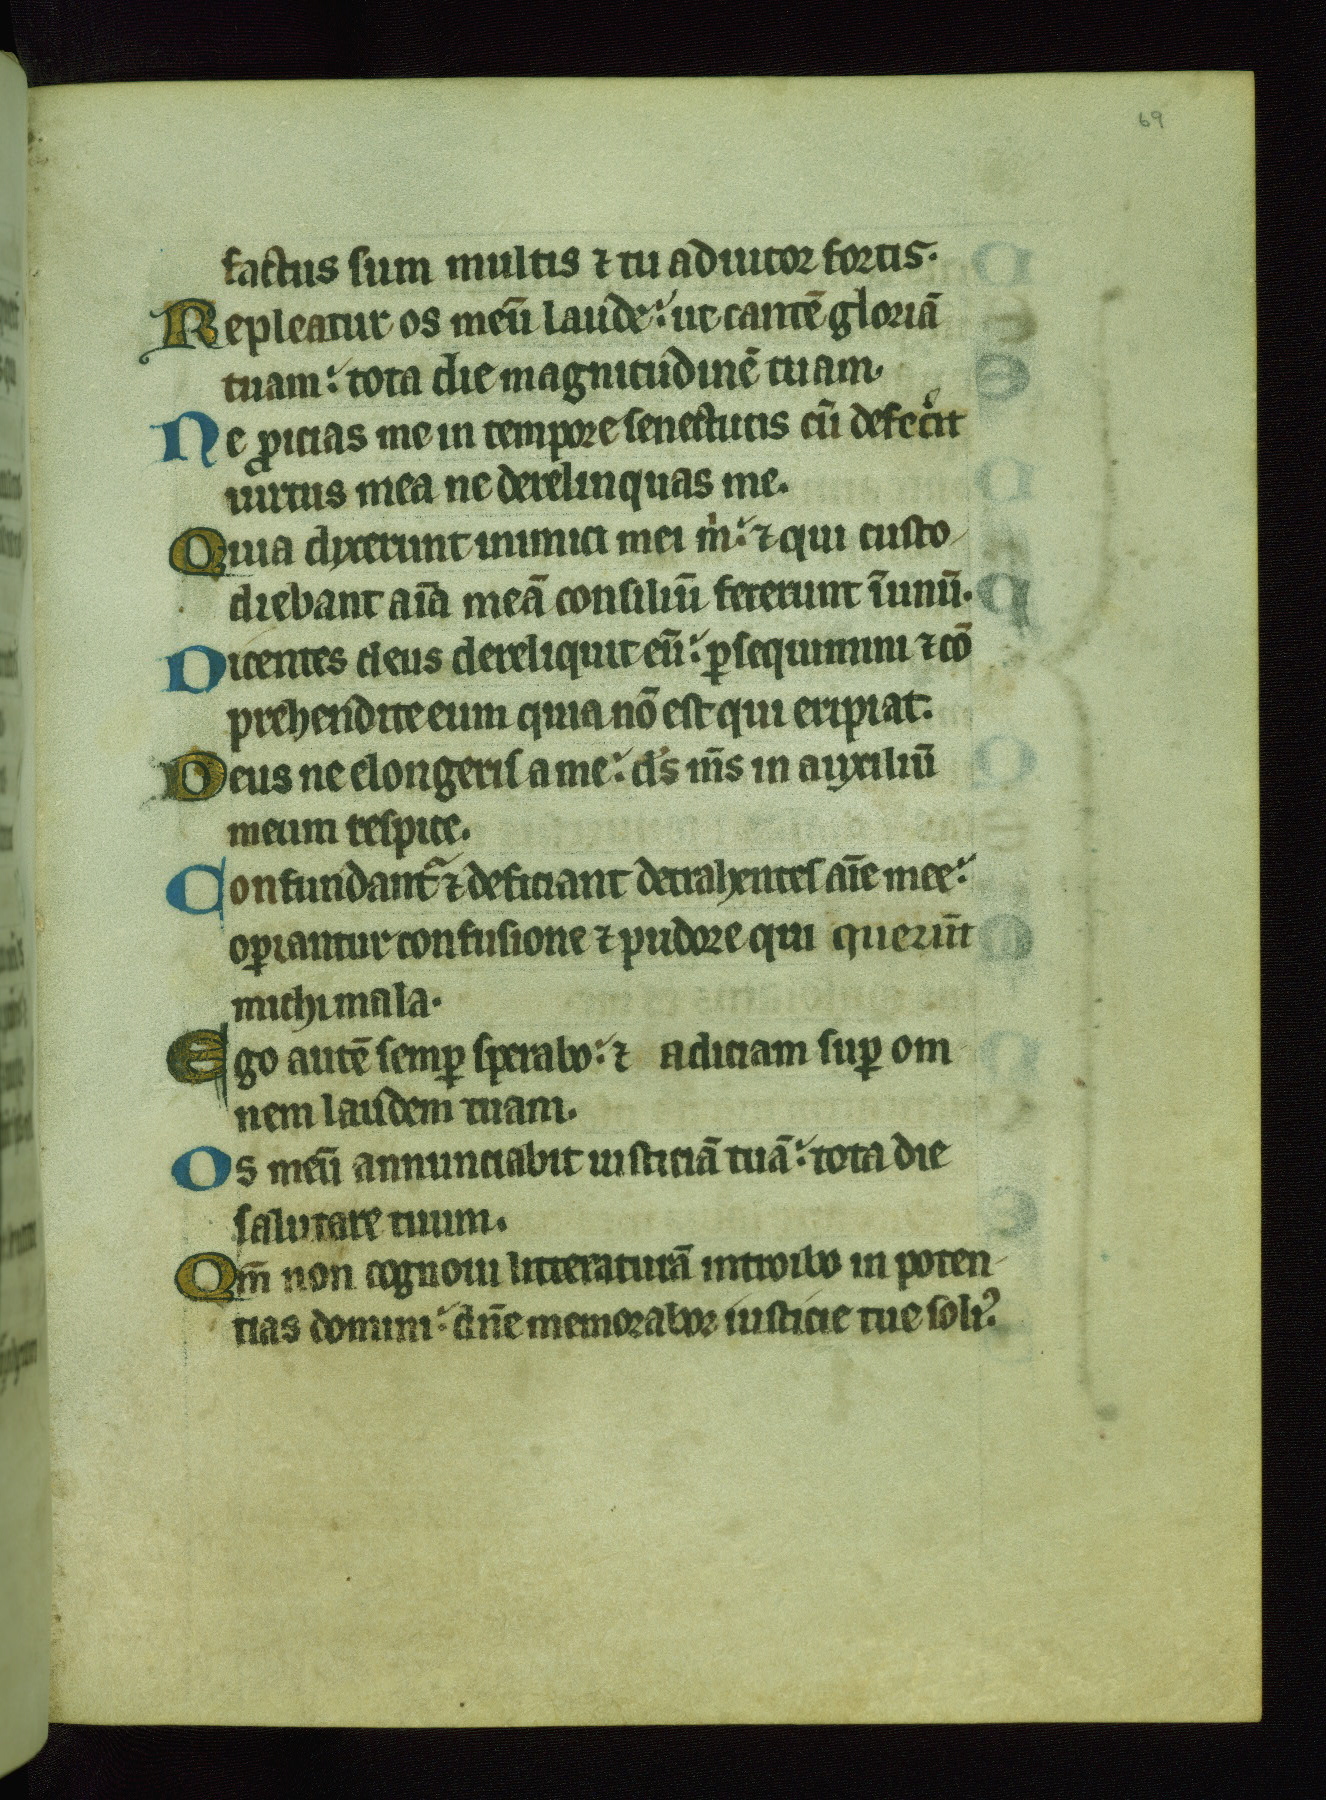 69
factus sum multis ⁊ tu adiutor fortis.
Repleatur os meū laude: ut cantē gloriā
tuam: tota die magnitudinē tuam.
Ne ꝓicias me in tempore senectutis cū defecͥit
uirtus mea ne derelinquas me.
Quia dixerunt inimici mei m̍: ⁊ qui custo
diebant aīa meā consiliū fecerunt ī unū.
Dicentes deus dereliquit eū: ꝑsequimini ⁊ cō
prehendite eum quia nō est qui eripiat.
Deus ne elongeris a me: ds̄ ms̄ in auxiliū
meum respice.
Confundant᷑ ⁊ deficiant detrahentes aīe mee:
oꝑiantur confusione ⁊ pudore qui querūt
michi mala.
Ego autē semꝑ sperabo: ⁊ adiciam suꝑ om
nem laudem tuam.
Os meū annunciabit iusticiā tuā: tota die
salutare tuum.
Qm̄ non cognoui litteraturā introibo in poten
tias domini: dn̄e memorabor iusticie tue soliꝰ